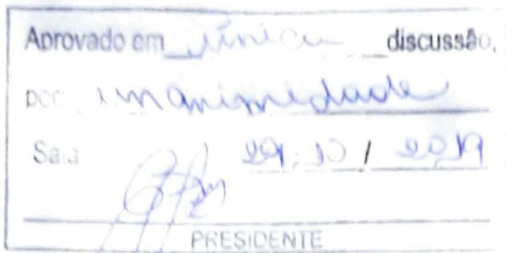 Aprovado em única discussão,
por unanimidade
Sala 29/10/2019
PRESIDENTE